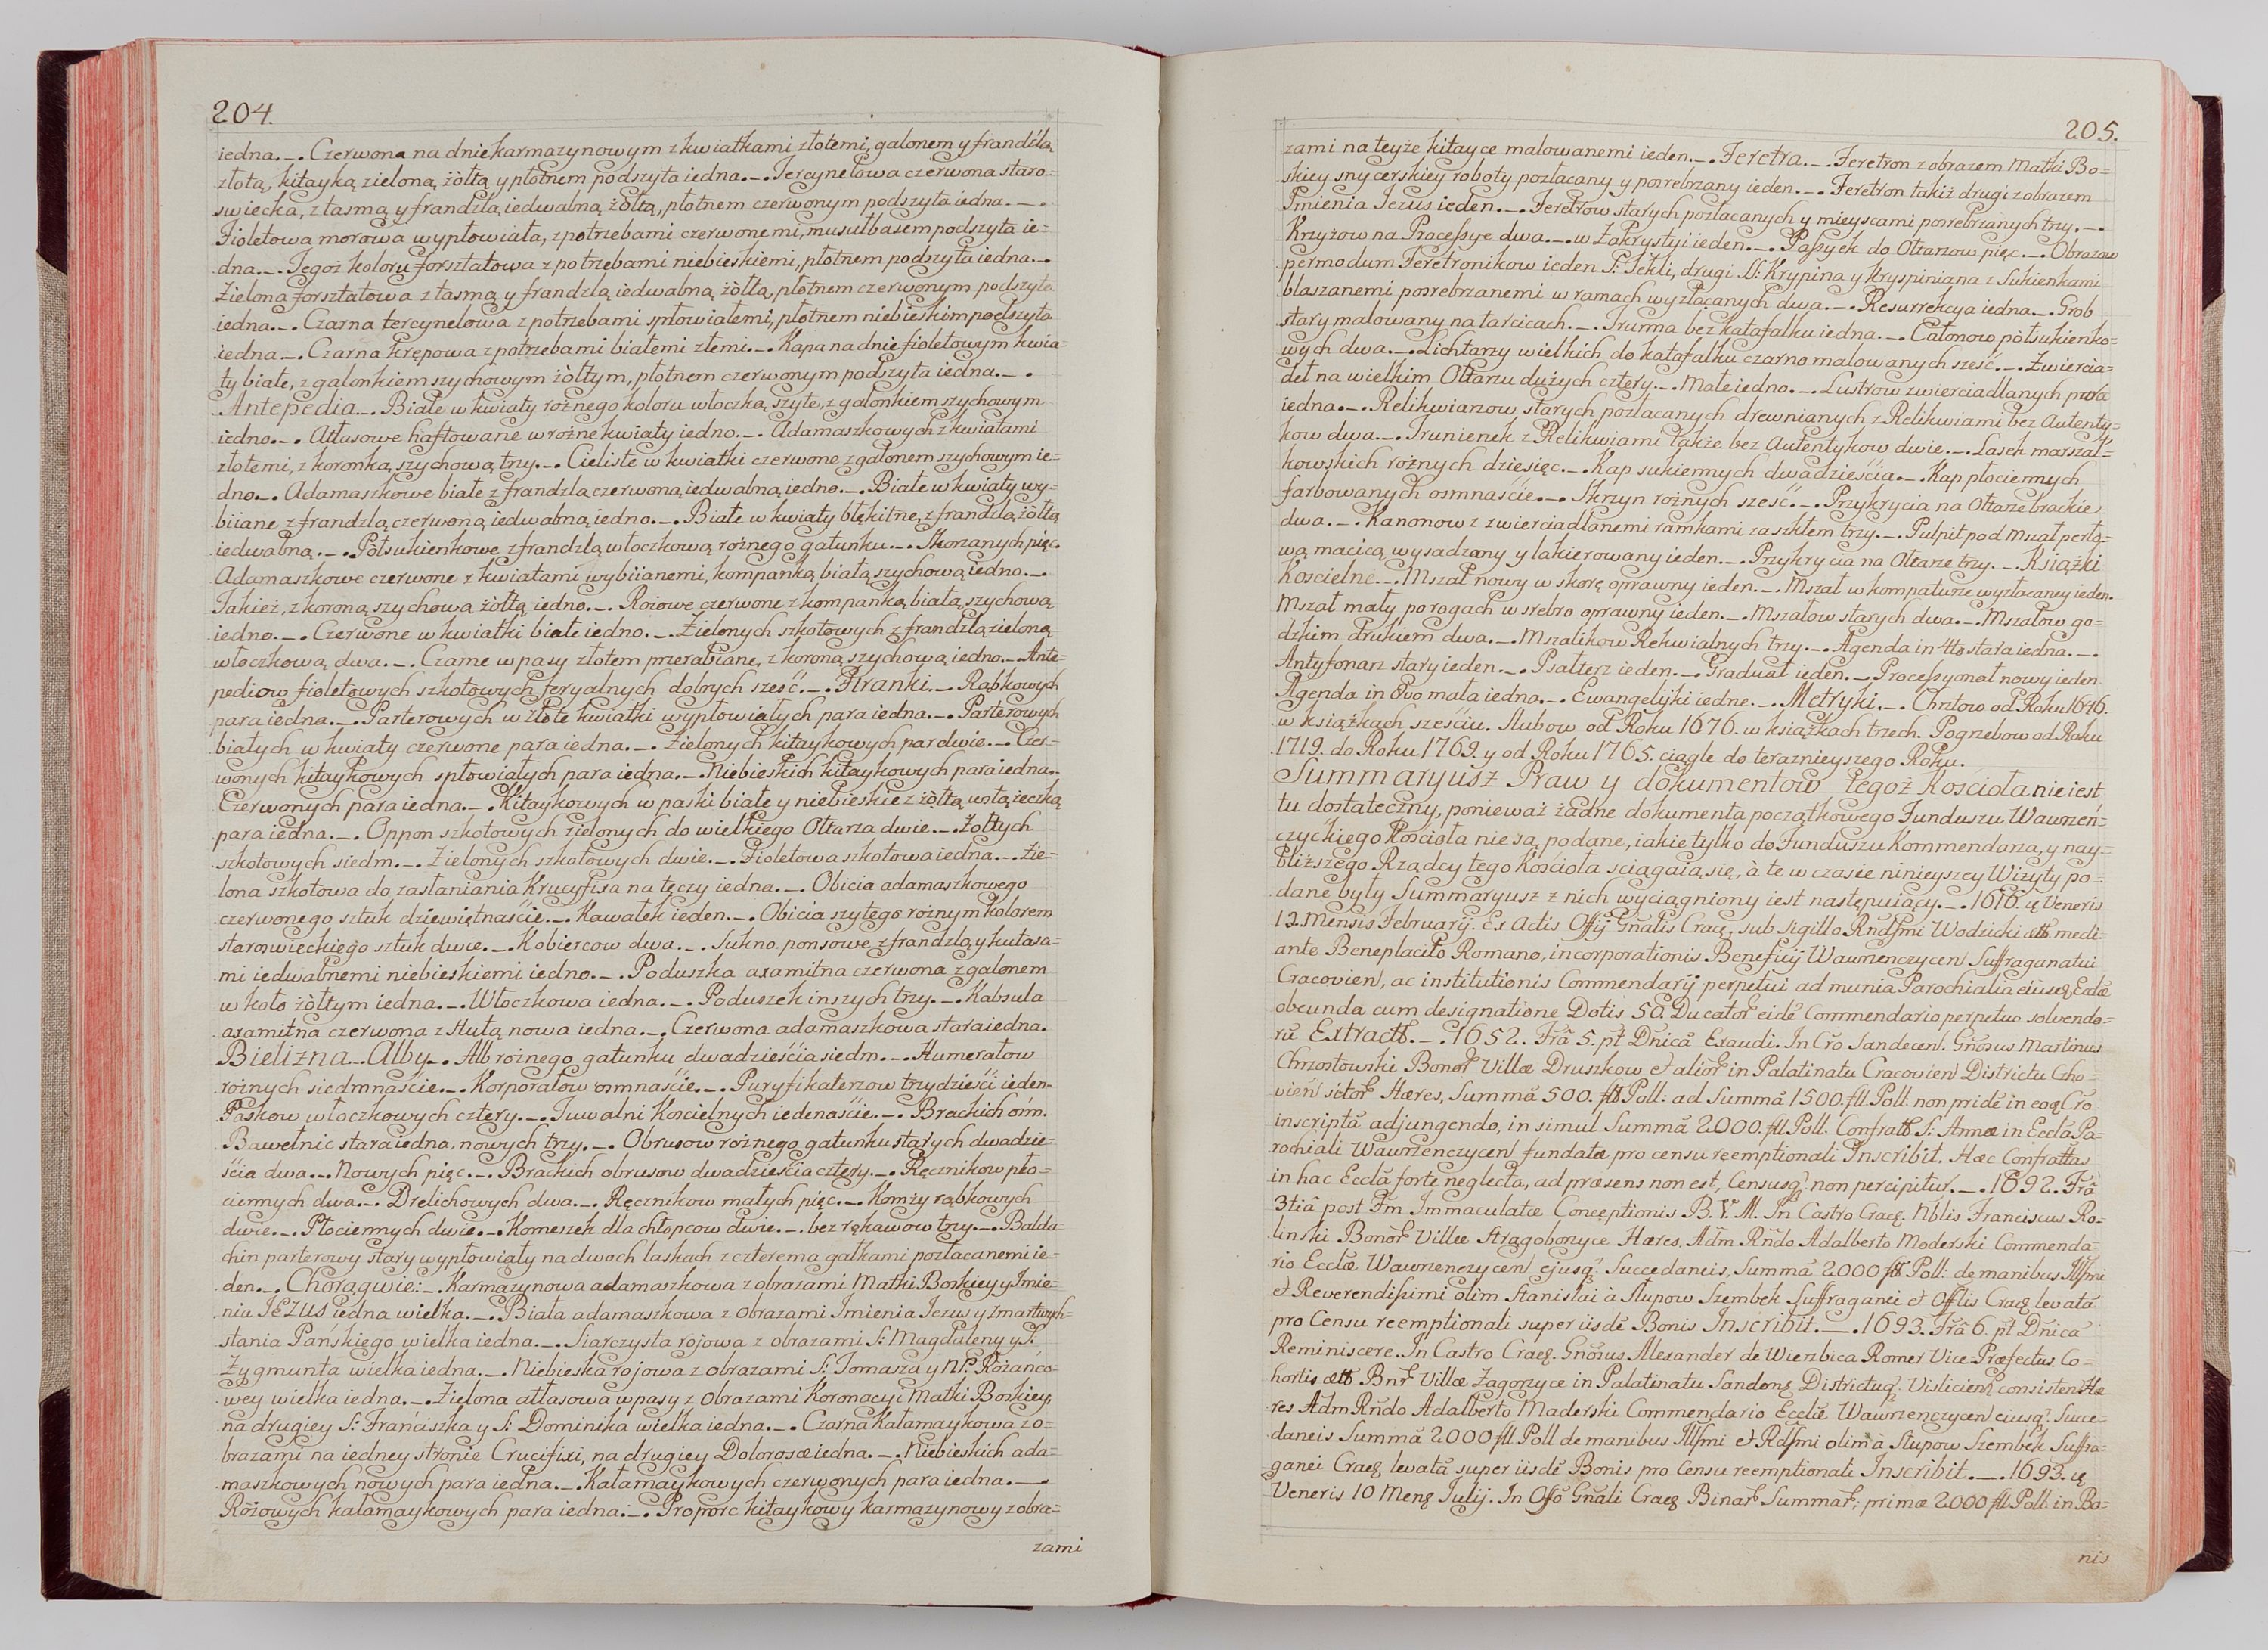 204.
iedna._. Czerwona na dnie karmazynowym z kwiatkami złotemi, galonem y frandzlą
złotą, kitayką zieloną, żółtą y płotnem podszyta iedna._. Tercynelowa czerwona staro=
swiecka, z tasmą y frandzlą iedwabną żółtą, płotnem czerwonym podszyta iedna._.
Fioletowa morowa wypłowiała, z potrzebami czerwonemi, musułbasem podszyta ie=
dna._. Tegoż koloru forsztatowa z potrzebami niebieskiemi, płotnem podszyta iedna._.
Zielona forsztatowa z tasmą y frandzlą iedwabną żółtą, płotnem czerwonym podszyta
iedna._. Czarna tercynelowa z potrzebami spłowiałemi, płotnem niebieskim podszyta
iedna._. Czarna krępowa z potrzebami białemi złemi._. Kapa na dnie fioletowym kwia=
ty białe, z galonkiem szychowym żółtym, płotnem czerwonym podszyta iedna._.
Antepedia._. Białe w kwiaty rożnego koloru włoczką szyte, z galonkiem szychowym
iedno._. Atłasowe haftowane w rożne kwiaty iedno._. Adamaszkowych z kwiatami
złotemi, z koronką szychową trzy._. Cieliste w kwiatki czerwone z galonem szychowym ie=
dno._. Adamaszkowe białe z frandzlą czerwoną iedwabną iedno._. Białe w kwiaty wy=
biiane z frandzlą czerwoną iedwabną iedno._. Białe w kwiaty błękitne, z frandzlą żółtą
iedwabną._. Półsukienkowe z frandzlą włoczkową rożnego gatunku._. Skorzanych pięć.
Adamaszkowe czerwone z kwiatami wybiianemi, kompanką białą szychową iedno._.
Takież, z koroną szychową żółtą iedno._. Rożowe czerwone z kompanką białą szychową
iedno._. Czerwone w kwiatki białe iedno._. Zielonych szkotowych z frandzlą zieloną
włoczkową dwa._. Czarne w pasy złotem przerabiane, z koroną szychową iedno._. Ante=
pediow fioletowych szkotowych feryalnych dobrych sześć._. Firanki._. Rąbkowych
para iedna._. Parterowych w złote kwiatki wypłowiałych para iedna._. Parterowych
białych w kwiaty czerwone para iedna._. Zielonych kitaykowych par dwie._. Czer=
wonych kitaykowych spłowiałych para iedna._. Niebieskich kitaykowych para iedna._.
Czerwonych para iedna._. Kitaykowych w paski białe y niebieskie z żółtą wstążeczką
para iedna._. Oppon szkotowych zielonych do wielkiego Ołtarza dwie._. Zołtych
szkotowych siedm._. Zielonych szkotowych dwie._. Fioletowa szkotowa iedna._. Zie=
lona szkotowa do zasłaniania Krucyfixa na tęczy iedna._. Obicia adamaszkowego
czerwonego sztuk dziewiętnaście._. Kawałek ieden._. Obicia szytego rożnym kolorem
staroswieckiego sztuk dwie._. Kobiercow dwa._. Sukno ponsowe z frandzlą y kutasa=
mi iedwabnemi niebieskiemi iedno._. Poduszka axamitna czerwona z galonem
w koło żółtym iedna._. Włoczkowa iedna._. Poduszek inszych trzy._. Kabzula
axamitna czerwona z stułą nowa iedna._. Czerwona adamaszkowa stara iedna.
Bielizna._. Alby._. Alb rożnego gatunku dwadzieścia siedm._. Humerałow
rożnych siedmnaście._. Korporałow ośmnaście._. Puryfikaterzow trzydzieści ieden.
Paskow włoczkowych cztery._. Tuwalni Koscielnych iedenaście._. Brackich ośm.
Bawełnic stara iedna, nowych trzy._. Obrusow rożnego gatunku starych dwadzie=
ścia dwa._. Nowych pięć._. Brackich obrusow dwadzieścia cztery._. Ręcznikow pło=
ciennych dwa._. Drelichowych dwa._. Ręcznikow małych pięć._. Komży rąbkowych
dwie._. Płociennych dwie._. Komeszek dla chłopcow dwie._. bez rękawow trzy._. Balda=
chin parterowy stary wypłowiały na dwoch laskach z czterema gałkami pozłacanemi ie=
den._. Chorągwie:_. Karmazynowa adamaszkowa z obrazami Matki Boskiey y Imie=
nia JEZUS iedna wielka._. Biała adamaszkowa z obrazami Imienia Jezus y Zmartwych=
stania Pańskiego wielka iedna._. Siarczysta rojowa z obrazami S: Magdaleny y S:
Zygmunta wielka iedna._. Niebieska rojowa z obrazami S: Tomasza y NP. Rożańco=
wey wielka iedna._. Zielona atłasowa w pasy z obrazami Koronacyi Matki Boskiey,
na drugiey S: Franciszka y S: Dominika wielka iedna._. Czarna Kałamaykowa z o=
brazami na iedney stronie Crucifixi, na drugiey Dolorosæ iedna._. Niebieskich ada=
maszkowych nowych para iedna._. Kałamaykowych czerwonych para iedna._.
Rożowych kałamaykowych para iedna._. Proporc kitaykowy karmazynowy z obra=
zami
205.
zami na teyże kitayce malowanemi ieden._. Feretra._. Feretron z obrazem Matki Bo=
skiey snycerskiey roboty pozłacany y posrebrzany ieden._. Feretron takiż drugi z obrazem
Imienia Jezus ieden._. Feretrow starych pozłacanych y mieyscami posrebrzanych trzy._.
Krzyżow na Processye dwa._. w Zakrystyi ieden._. Passyek do Ołtarzow pięć._. Obrazow
per modum Feretronikow ieden S: Tekli, drugi SS: Krypina y Kryspiniana z Sukienkami
blaszanemi posrebrzanemi w ramach wyzłacanych dwa._. Resurrekcya iedna._. Grob
stary malowany na tarcicach._. Trunna bez katafalku iedna._. Całonow półsukienko=
wych dwa._. Lichtarzy wielkich do katafalku czarno malowanych sześć._. Zwiercia=
deł na wielkim Ołtarzu dużych cztery._. Małe iedno._. Lustrow zwierciadlanych para
iedna._. Relikwiarzow starych pozłacanych drewnianych z Relikwiami bez Autenty=
kow dwa._. Trunienek z Relikwiami także bez Autentykow dwie._. Lasek marszał=
kowskich rożnych dziesięć._. Kap sukiennych dwadzieścia._. Kap płociennych
farbowanych osmnaście._. Skrzyn rożnych sześć._. Przykrycia na Ołtarze brackie
dwa._. Kanonow z zwierciadlanemi ramkami za szkłem trzy._. Pulpit pod Mszał perło=
wą macicą wysadzany y lakierowany ieden._. Przykrycia na Ołtarze trzy._. Książki
Koscielne._. Mszał nowy w skorę oprawny ieden._. Mszał w kompaturze wyzłacaney ieden.
Mszał mały po rogach w srebro oprawny ieden._. Mszałow starych dwa._. Mszałow go=
dzkim drukiem dwa._. Mszalikow Rekwialnych trzy._. Agenda in 4to stara iedna._.
Antyfonarz stary ieden._. Psałterz ieden._. Graduał ieden._. Processyonał nowy ieden
Agenda in 8vo mała iedna._. Ewangeliiki iedne._. Metryki._. Chrztow od Roku 1646.
w książkach sześciu. Slubow od Roku 1676. w książkach trzech. Pogrzebow od Roku
1719. do Roku 1769. y od Roku 1765. ciągle do teraznieyszego Roku.
Summaryusz Praw y dokumentow tegoż Kościoła nie iest
tu dostateczny, ponieważ żadne dokumenta początkowego Funduszu Wawrzeń=
czyckiego Kościoła nie są podane, iakie tylko do Funduszu Kommendarza, y nay=
bliższego Rządcy tego Kościoła sciągaią się, à te w czasie ninieyszey Wizyty po=
dane były Summaryusz z nich wyciągniony iest następuiący._. 1676. Veneris
12. Mensis Februarij. Ex Actis Offij Gnalis Crac, sub Sigillo Rndssmi Wodzicki medi=
ante Beneplacito Romano, incorporationis Beneficij Wawrzenczycen Suffraganatui
Cracovien, ac institutionis Commendarij perpetui ad munia Parochialia eiusq Ecclæ
obeunda cum designatione Dotis 50. Ducator eidē Commendario perpetuo solvendo=
rū Extractt._. 1652. Frā 5. pt Dnicā Exaudi. In Cro Sandecen. Gnosus Martinus
Chrzostowski Bonor Villæ Druszkow et alior in Palatinatu Cracovien Districtu Czcho=
vien sitor Hæres, Summā 500. fll Poll: ad Summā 1500. fll Poll: non pridē in eoq Cro
inscriptā adjungendo, in simul Summā 2000. fll Poll. Confratt S: Annæ in Eccla Pa=
rochiali Wawrzenczycen fundatæ pro censu reemptionali Inscribit. Hæc Confrattas
in hac Eccla forte neglecta, ad præsens non est, Censusq non percipitur._. 1692. Frā
3tiâ post Fm Immaculatæ Conceptionis B. V. M. In Castro Crac. Nblis Franciscus Ro=
linski Bonor Villæ Stragoborzyce Hæres, Adm Rndo Adalberto Moderski Commenda=
rio Ecclæ Wawrzenczycen ejusq Succedaneis, Summā 2000 fll Poll: de manibus Illssmi
et Reverendissimi olim Stanislai à Słupow Szembek Suffraganei et Offlis Crac levatā
pro Censu reemptionali super iisdē Bonis Inscribit._. 1693. Frā 6. pt Dnicā
Reminiscere. In Castro Crac. Gnosus Alexander de Wierzbica Romer Vice-Præfectus Co=
hortis Bnr Villæ Zagorzyce in Palatinatu Sandom Districtuq Vislicien consisten Hæ
res Adm Rndo Adalberto Maderski Commendario Ecclæ Wawrzenczycen eiusq Succe=
daneis Summā 2000 fll Poll de manibus Illssmi et Rdssmi olim à Słupow Szembek Suffra=
ganei Crac levatā super iisdē Bonis pro Censu reemptionali Inscribit._. 1693.
Veneris 10 Mens Julij. In Offo Gnali Crac Binar Summar; primæ 2000 fll Poll. in Bo=
nis